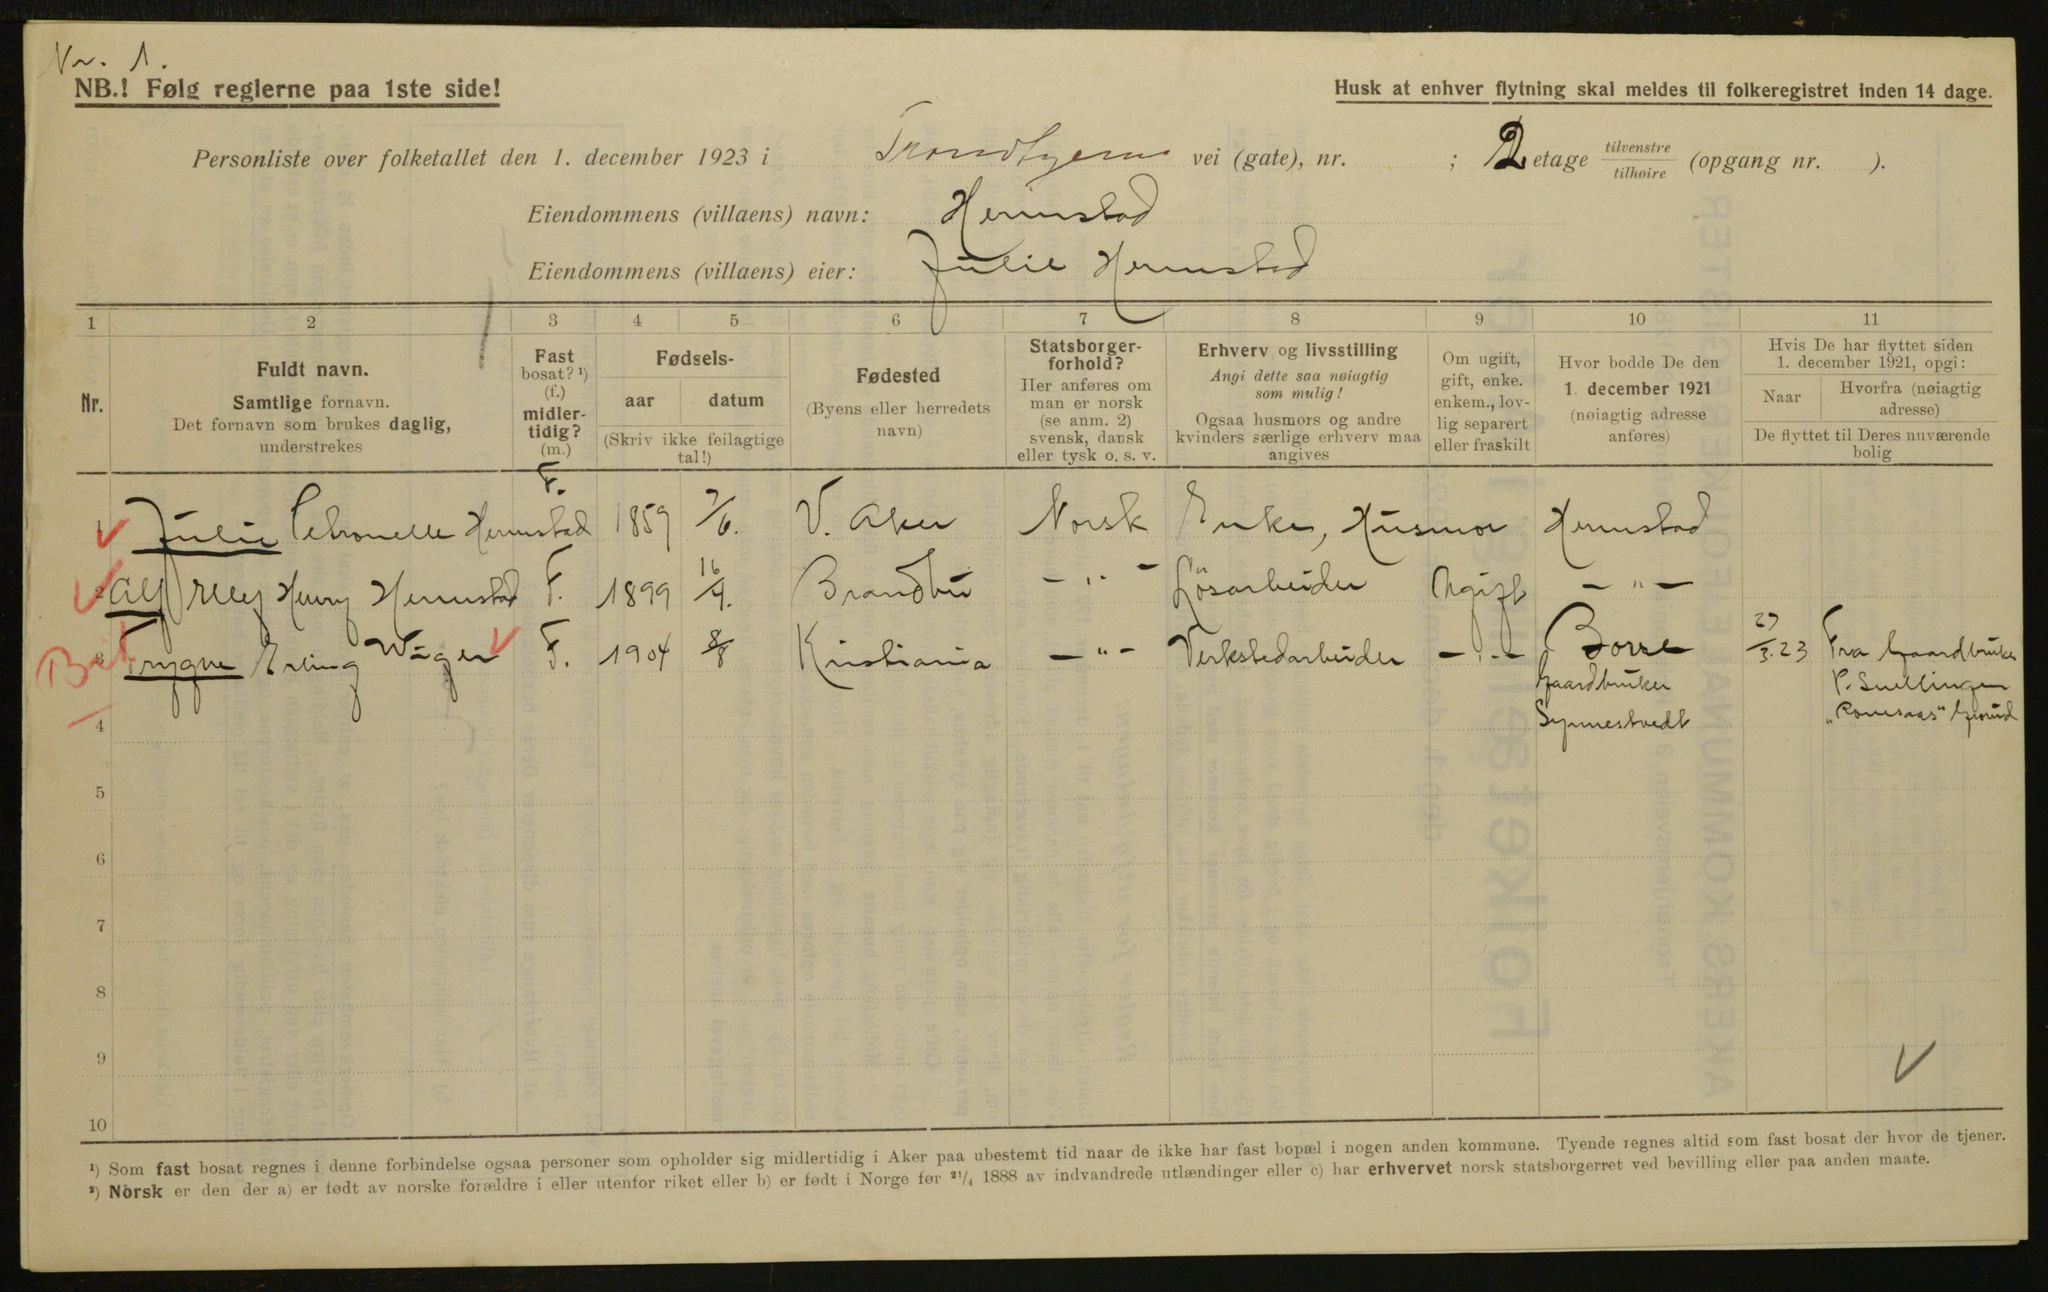 Nr. 1.
NB.! Følg reglerne paa 1ste side!
Husk at enhver flytning skal meldes til folkeregistret inden 14 dage.
Personliste over folketallet den 1. december 1923 i Trondhjems vei (gate), nr. ; 2 etage tilvenstre / tilhøire (opgang nr. ).
Eiendommens (villaens) navn: Hermstad
Eiendommens (villaens) eier: Julie Hermstad
1 2 3 4 5 6 7 8 9 10 11
Nr.
Fuldt navn.
Samtlige fornavn.
Det fornavn som brukes daglig,
understrekes
Fast
bosat? ¹)
(f.)
midler-
tidig?
(m.)
Fødsels-
aar datum
(Skriv ikke feilagtige
tal!)
Fødested
(Byens eller herredets
navn)
Statsborger-
forhold?
Her anføres om
man er norsk
(se anm. 2)
svensk, dansk
eller tysk o. s. v.
Erhverv og livsstilling
Angi dette saa nøiagtig
som mulig!
Ogsaa husmors og andre
kvinders særlige erhverv maa
angives
Om ugift,
gift, enke.
enkem., lov-
lig separert
eller fraskilt
Hvor bodde De den
1. december 1921
(nøiagtig adresse
anføres)
Hvis De har flyttet siden
1. december 1921, opgi:
Naar
Hvorfra (nøiagtig
adresse)
De flyttet til Deres nuværende
bolig
1 Julie Petronelle Hermstad F. 1859 7/6. V. Aker Norsk Enke, Husmor Hermstad
2 Alf Henry Hermstad F. 1899 16/9. Brandbu -"- Løsarbeider Ugift -"-
Bet. 3 Trygve Erling Wager F. 1904 8/8 Kristiania -"- Verkstedarbeider -"- Borre 27/3.23 Fra Gaardbruker
Gaardbruker P. Snellingen
Synnestvedt "Romsaas" Grorud
4
5
6
7
8
9
10
¹) Som fast bosat regnes i denne forbindelse ogsaa personer som opholder sig midlertidig i Aker paa ubestemt tid naar de ikke har fast bopæl i nogen anden kommune. Tyende regnes altid som fast bosat der hvor de tjener.
²) Norsk er den der a) er født av norske forældre i eller utenfor riket eller b) er født i Norge før ²¹/₄ 1888 av indvandrede utlændinger eller c) har erhvervet norsk statsborgerret ved bevilling eller paa anden maate.